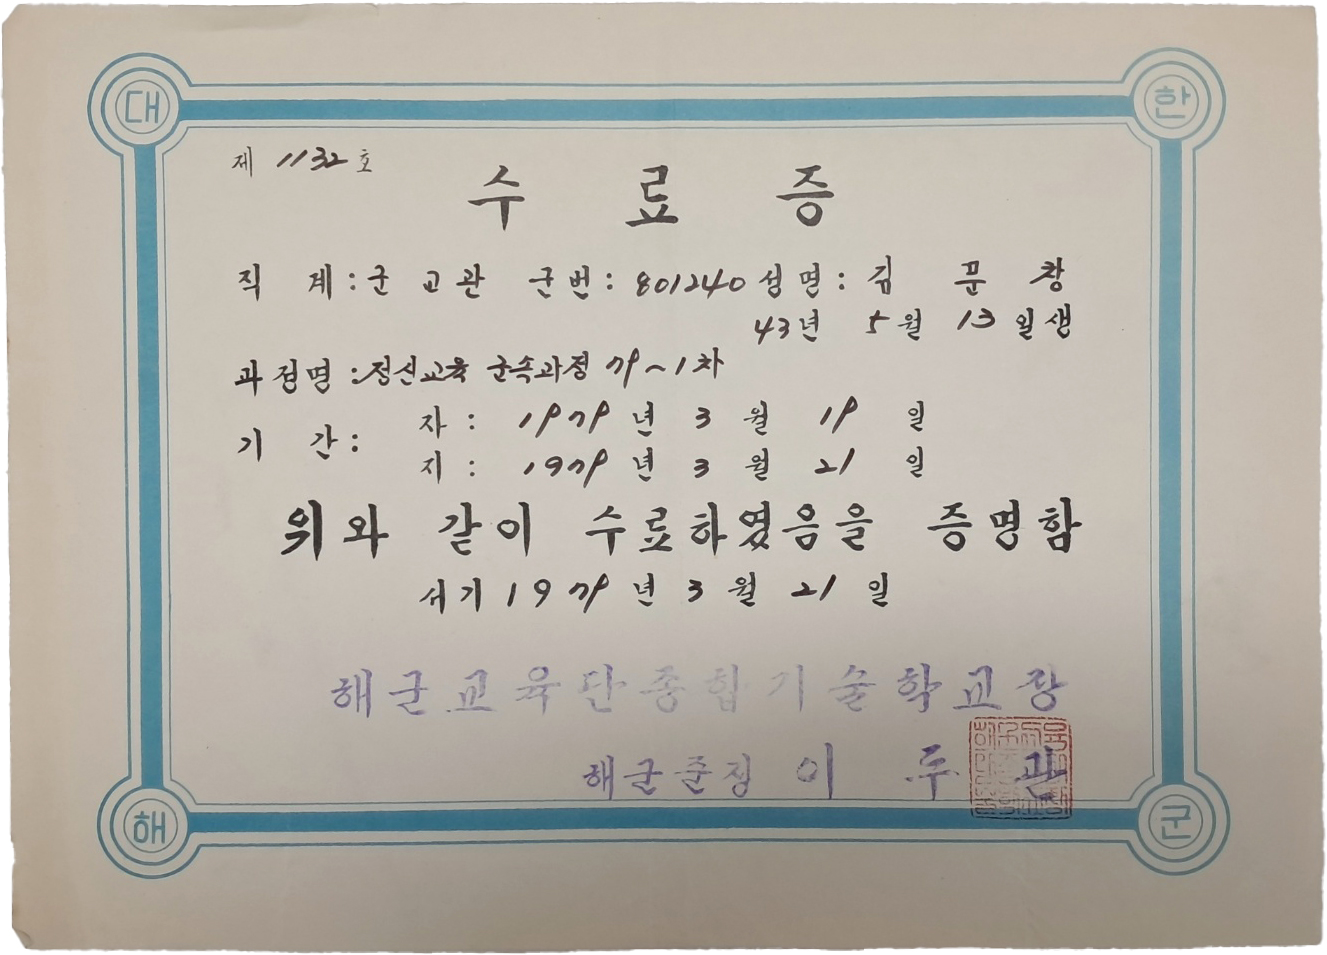 대 한
제 1132 호
수 료 증
직 계 : 군 교관 군번 : 801240 성명 : 김 문 창
43년 5월 13일생
과정명 : 정신교육 군속과정 79~1차
기 간 :
자 : 1979년 3월 19일
지 : 1979년 3월 21일
위와 같이 수료하였음을 증명함
서기 1979년 3월 21일
해군교육단종합기술학교장
해군준장 이 두 관
해 군